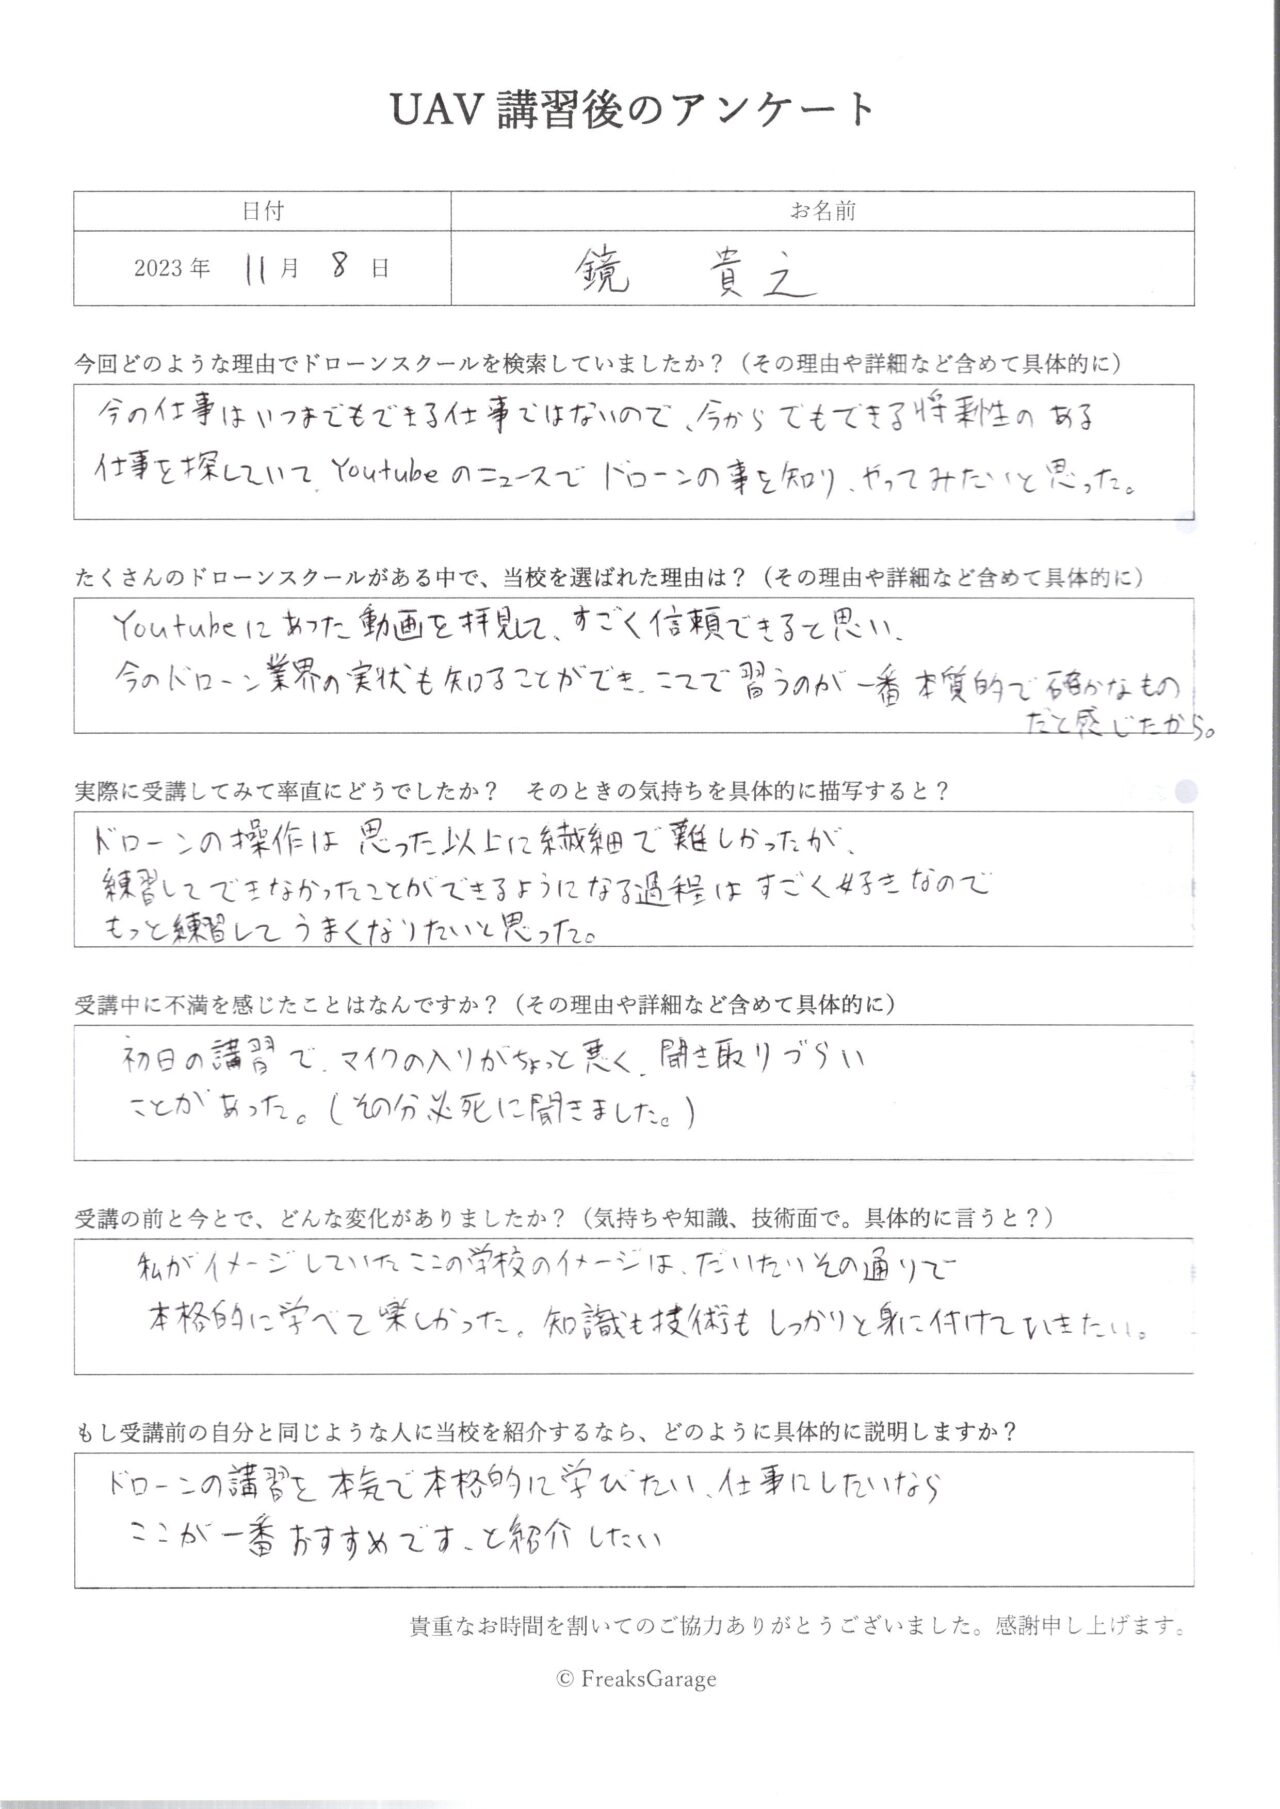 UAV 講習後のアンケート
日付
お名前
2023年 11月 8日
鏡 貴之
今回どのような理由でドローンスクールを検索していましたか？（その理由や詳細など含めて具体的に）
今の仕事はいつまでもできる仕事ではないので、今からでもできる将来性のある
仕事を探していて、Youtubeのニュースでドローンの事を知り、やってみたいと思った。
たくさんのドローンスクールがある中で、当校を選ばれた理由は？（その理由や詳細など含めて具体的に）
Youtubeにあった動画を拝見して、すごく信頼できると思い、
今のドローン業界の実状も知ることができ、ここで習うのが一番本質的で確かなもの
だと感じたから。
実際に受講してみて率直にどうでしたか？　そのときの気持ちを具体的に描写すると？
ドローンの操作は思った以上に繊細で難しかったが、
練習してできなかったことができるようになる過程はすごく好きなので
もっと練習してうまくなりたいと思った。
受講中に不満を感じたことはなんですか？（その理由や詳細など含めて具体的に）
初日の講習で、マイクの入りがちょっと悪く、聞き取りづらい
ことがあった。（その分必死に聞きました。）
受講の前と今とで、どんな変化がありましたか？（気持ちや知識、技術面で。具体的に言うと？）
私がイメージしていたここの学校のイメージは、だいたいその通りで
本格的に学べて楽しかった。知識も技術もしっかりと身に付けていきたい。
もし受講前の自分と同じような人に当校を紹介するなら、どのように具体的に説明しますか？
ドローンの講習を本気で本格的に学びたい、仕事にしたいなら
ここが一番おすすめです、と紹介したい
貴重なお時間を割いてのご協力ありがとうございました。感謝申し上げます。
© FreaksGarage